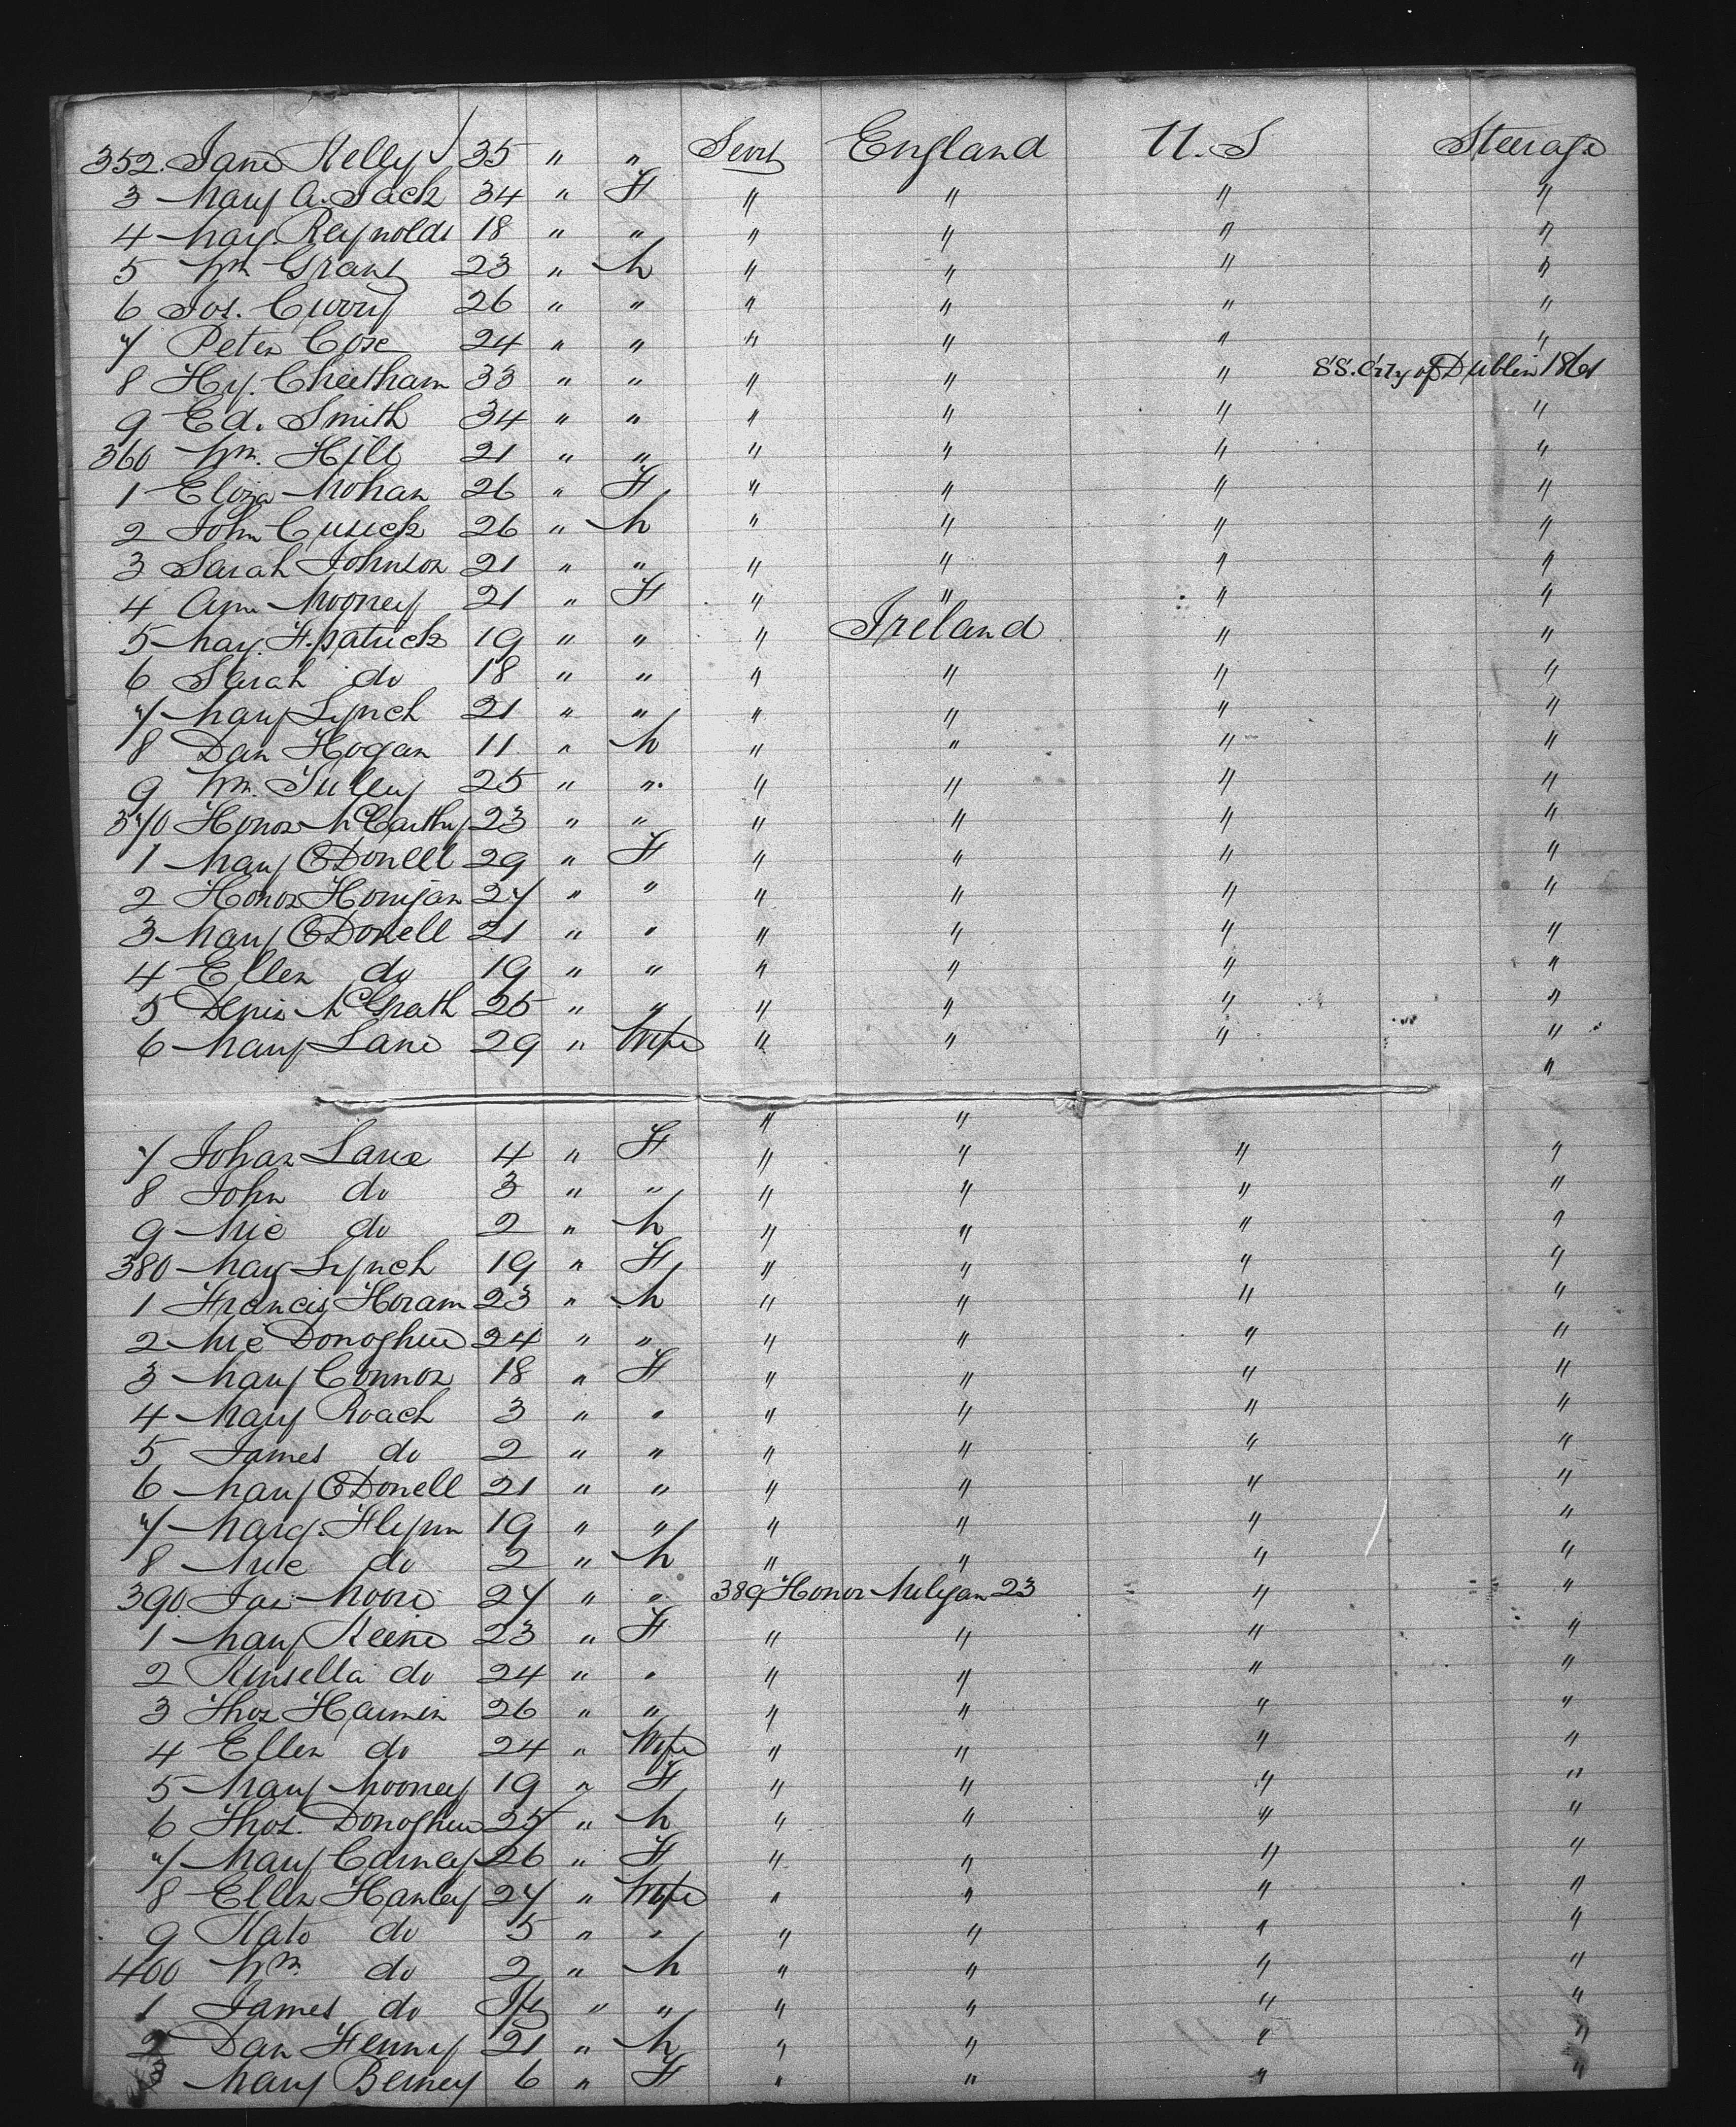 352. Jane Kelly √ 35 " " Servt England U.S Steerage
3 Mary A. Jack 34 " F " " " "
4 Mary. Reynolds 18 " " " " " "
5 Wm Grant 23 " M " " " "
6 Jos. Curry 26 " " " " " "
7 Peter Coxe 24 " " " " " "
8 Hy. Cheetham 33 " " " " " S.S. City of Dublin 1861
9 Ed. Smith 34 " " " " " "
360 Wm. Hill 21 " " " " " "
1 Eliza Mohan 26 " F " " " "
2 John Cusick 26 " M " " " "
3 Sarah Johnson 21 " " " " " "
4 Ann Mooney 21 " F " " " "
5 Mary. F.patrick 19 " " " Ireland " "
6 Sarah do 18 " " " " " "
7 Mary Lynch 21 " " " " " "
8 Dan Hogan 11 " M " " " "
9 Wm. Tulley 25 " " " " " "
370 Honor McCarthy 23 " " " " " "
1 Mary ODonell 29 " F " " " "
2 Honor Honijan 27 " " " " " "
3 Mary ODonell 21 " " " " " "
4 Ellen do 19 " " " " " "
5 Denis McGrath 25 " " " " " "
6 Mary Lane 29 " Wife " " " "
"
" "
7 Johan Lane 4 " F " " " "
8 John do 3 " " " " " "
9 Mic do 2 " M " " " "
380 Mary Lynch 19 " F " " " "
1 Francis Horam 23 " M " " " "
2 Mic Donoghue 24 " " " " " "
3 Mary Connor 18 " F " " " "
4 Mary Roach 3 " " " " " "
5 James do 2 " " " " " "
6 Mary ODonell 21 " " " " " "
7 Marg. Flynn 19 " " " " " "
8 Mic do 2 " M " " " "
390 Jas Moore 27 " " 389 Honor Miligan 23 " "
1 Mary Keene 23 " F " " " "
2 Kinsella do 24 " " " " " "
3 Thos Harmin 26 " " " " " "
4 Ellen do 24 " Wife " " " "
5 Mary Mooney 19 " F " " " "
6 Thos. Donoghue 25 " M " " " "
7 Mary Carney 26 " F " " " "
8 Ellen Hanley 27 " Wife " " " "
9 Kate do 5 " " " " " "
400 Wm do 2 " M " " " "
1 James do " " " " " "
2 Dan Fenny 21 " M " " " "
3 Mary Berney 6 " F " " " "